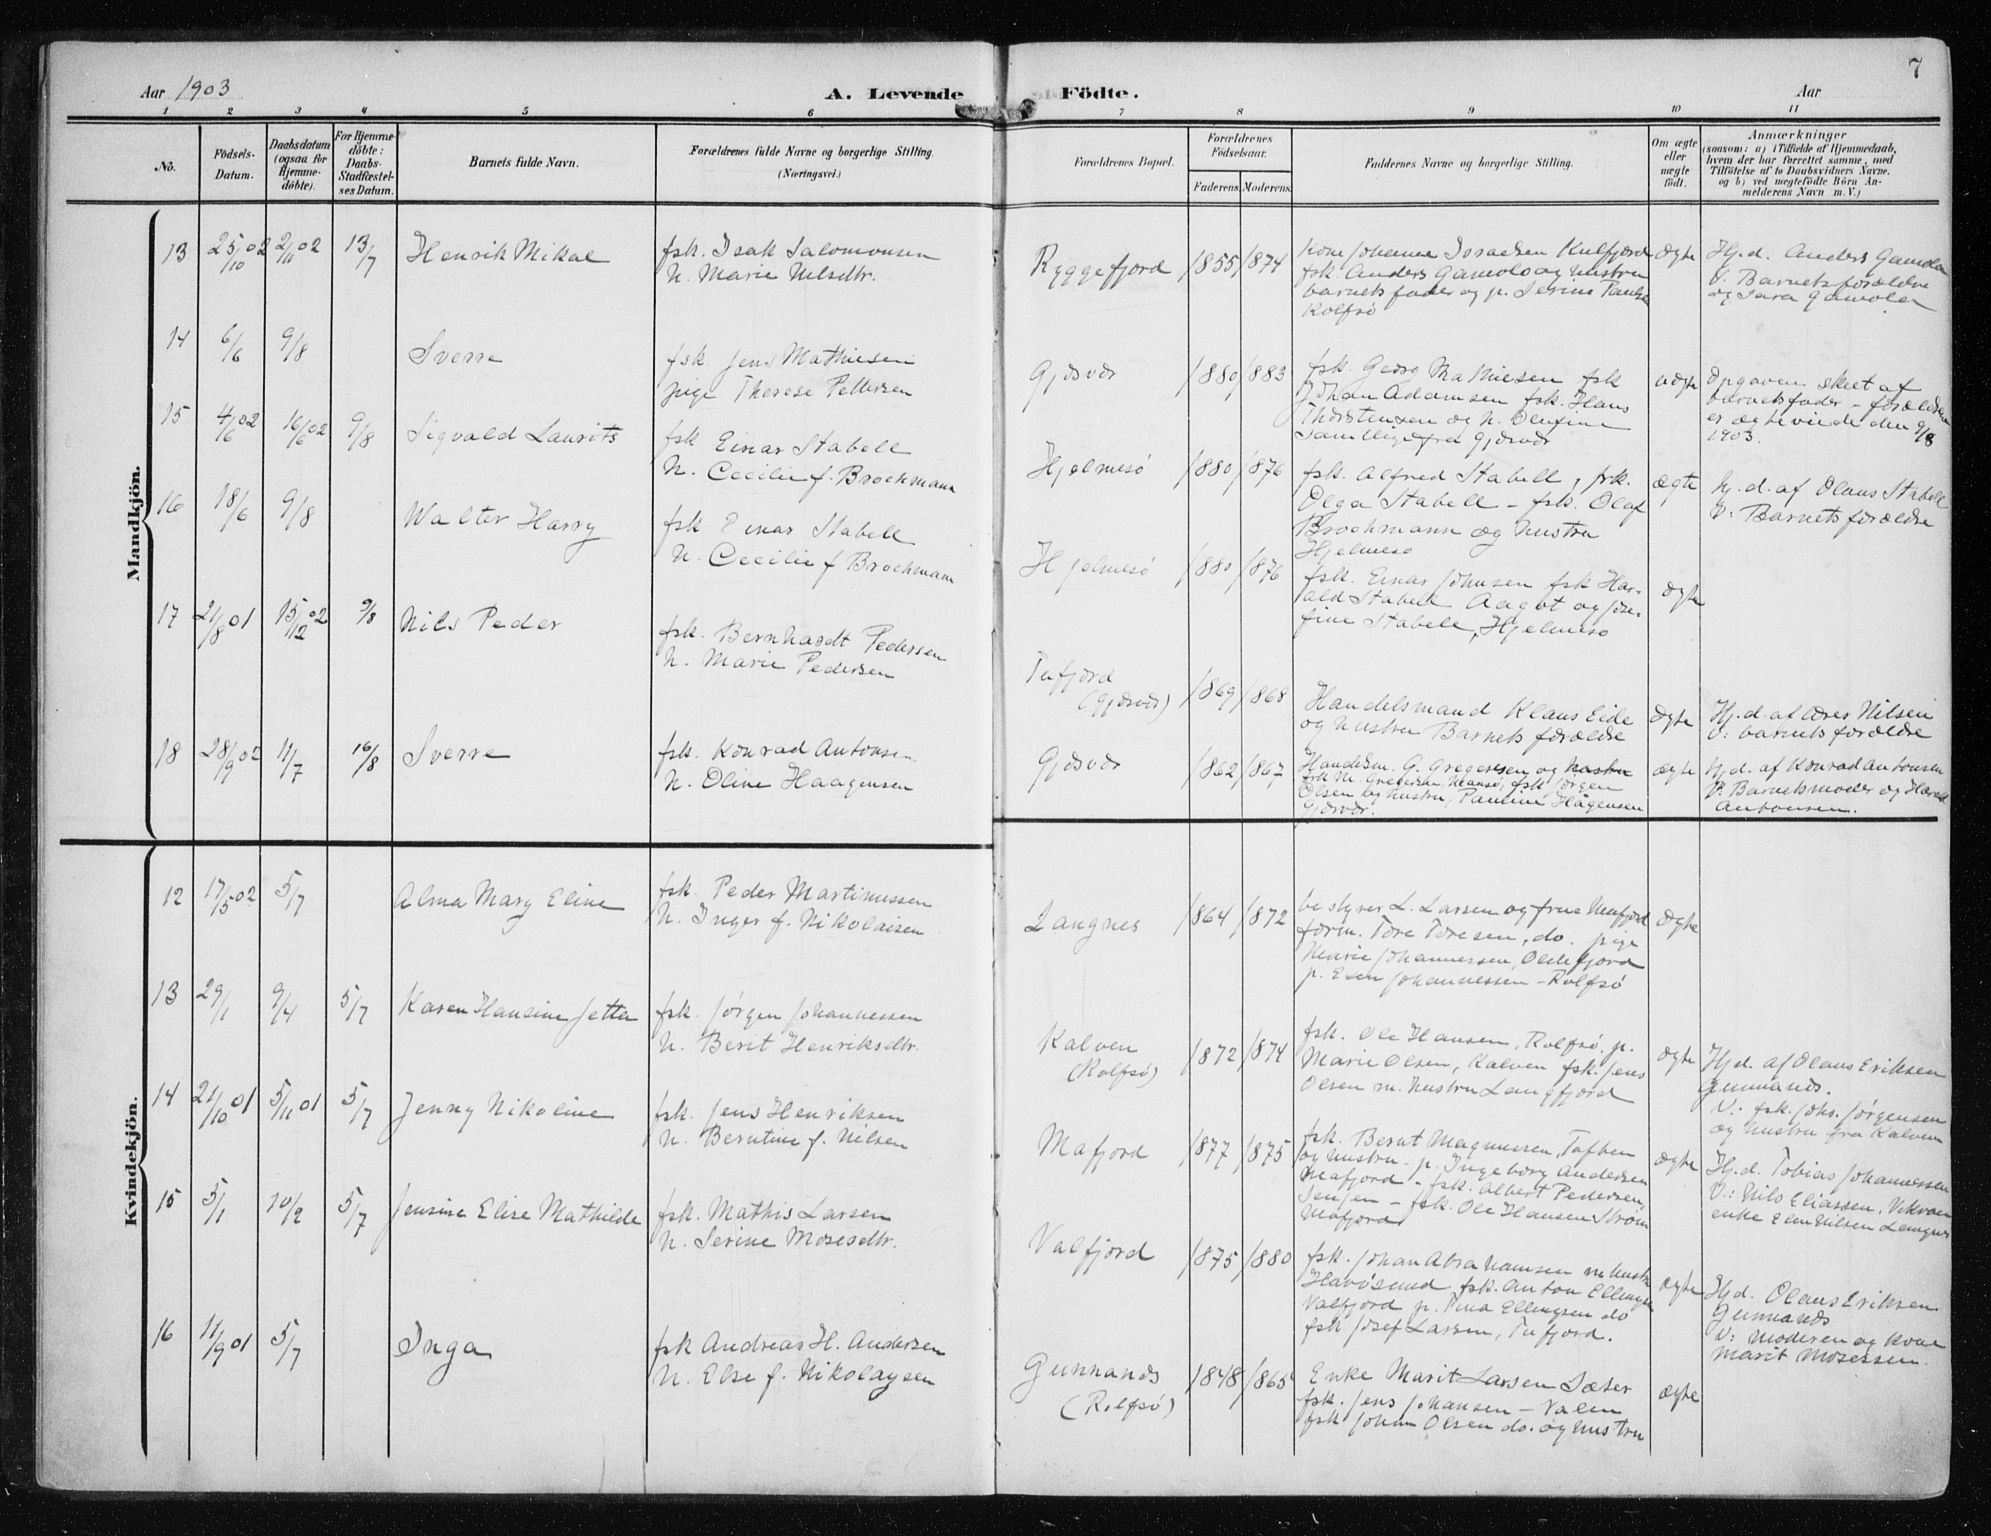 7
Aar 1903
A. Levende Födte.
Aar
1 2 3 4 5 6 7 8 9 10 11
No.
Födsels-
Datum.
Daabsdatum
(ogsaa for
Hjemme-
döbte).
For Hjemme-
döbte:
Daabs-
Stadfæstel-
ses Datum.
Barnets fulde Navn.
Forældrenes fulde Navne og borgerlige Stilling.
(Næringsvei.)
Forældrenes Bopæl.
Forældrenes
Födselsaar.
Faderens. Moderens.
Faddernes Navne og borgerlige Stilling.
Om ægte
eller
uægte
födt.
Anmærkninger
(saasom: a) i Tilfælde af Hjemmedaab,
hvem der har forrettet samme, med
Tilföielse af to Daabsvidners Navne.
og b) ved uægtefödte Börn An-
melderens Navn m. V.)
Mandkjön.
13 25/10 02 2/11 02 13/7 Henrik Mikal
fsk. Isak Salomonsen
h. Marie Nilsdtr.
Ryggefjord 1855 1874
Kone Johanne Israelsen Kulfjord
fsk. Anders Gamole og hustru
barnets fader og p. Serine Paulsen
Rolfsø
ægte
Hj.d. Anders
V. Barnets forældre
og Sara
14 6/6 9/8 Sverre
fsk. Jens Mathiesen
pige Therese Pettersen
Gjesvær 1880 1883
fsk. Georg Mathiesen fsk
Johan Adamsen fsk. Hans
Thorstensen og h. Olufine
samtlige fra Gjesvær
uægte
Opgaven skeet af
barnets fader - forældrene
er ægteviede den 9/8
1903.
15 4/6 02 16/6 02 9/8 Sigvald Laurits
fsk Einar Stabell
h. Cecilie f. Brochmann
Hjelmesø 1880 1876
fsk. Alfred Stabell, frk.
Olga Stabell - fsk. Olaf
Brochmann og hustru
Hjelmesø
ægte
hj.d. af Olaus Stabell
V: Barnets forældre
16 18/6 9/8 Walter Harry
fsk Einar Stabell
h. Cecilie f Brochmann
Hjelmesø 1880 1876
fsk. Einar Johnsen fsk Har-
ald Stabell Aagot og Jose-
fine Stabell, Hjelmesø
ægte
17 21/8 01 15/12 02 9/8 Nils Peder
fsk. Bernhardt Pedersen
h. Marie Pedersen
Tufjord
(Gjesvær)
1869 1868
Handelsmand Klaus Eide
og hustru Barnets forældre
ægte
Hj.d. af Nilsen
V: barnets forældre
18 28/9 02 11/7 16/8 Sverre
fsk. Konrad Antonsen
h. Oline Haagensen
Gjesvær 1862 1867
Handelsm. G. Gregersen og hustru
frk M. Gregersen, Maasø, fsk Jørgen
Olsen og hustru, Pauline Hågensen
Gjesvær.
ægte
hj.d. af Konrad Antonsen
V: Barnets moder og
Antonsen.
Kvindekjön.
12 17/5 02 5/7 Alma Mary Eline
fsk. Peder Martinussen
h. Inger f. Nikolaisen
Langnes 1864 1872
bestyrer L. Larsen og frue Mafjord
form. Tore Toresen, do. pige
Marie Johannessen, Oldefjord
p. Johannessen - Rolfsø
ægte
13 29/1 9/4 5/7 Karen Hansine Jetta
fsk. Jørgen Johannessen
h. Berit Henriksdtr.
Kalven
(Rolfsø)
1872 1874
fsk. Ole Hansen, Rolfsø p.
Marie Olsen, Kalven fsk. Jens
Olsen m. hustru Langfjord
ægte
Hj.d. af Olaus Eriksen
Gunnands.
V. fsk. Johs. Jørgensen
og hustru fra Kalven
14 21/10 01 5/11 01 5/7 Jenny Nikoline
fsk. Jens Henriksen
h. Berntine f. Nilsen
Mafjord 1877 1875
fsk. Bernt Magnussen, Toften
og hustru - p. Ingeborg Andersen
Mafjord - fsk. Albert Pedersen,
Senjen - fsk. Ole Hansen Strøm
Mafjord
ægte
Hj.d. Tobias Johannessen
V.: Nils Eliassen,
enke Nilsen
15 5/1 10/2 5/7 Jensine Elise Mathilde
fsk. Mathis Larsen
h. Serine Mosesdtr.
Valfjord 1875 1880
fsk. Johan Abrahamsen m. hustru
Havøsund fsk. Anton Ellingsen
Valfjord p. Tina Ellingsen do
fsk Josef Larsen, Tufjord.
ægte
Hj.d. Olaus Eriksen
Gunnands
V: Moderen og kone
Marit Mosessen.
16 11/9 01 5/7 Inga
fsk Andreas H. Andersen
h. Else f. Nikolaysen
Gunnands
(Rolfsø)
1848 1865
Enke Marit Larsen Sæter
fsk. Jens Johansen - Valen
fsk Johan Olsen do. og hustru
ægte